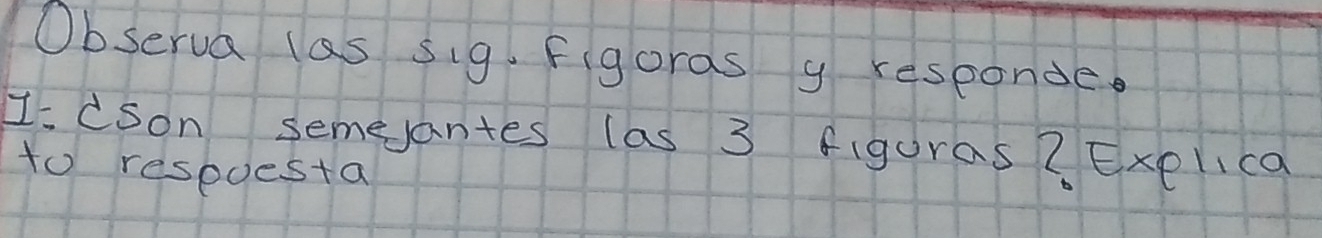 Observa las sig. Figoras y responde.
I= ¿Son semejantes las 3 figuras? Explica
to respoesta